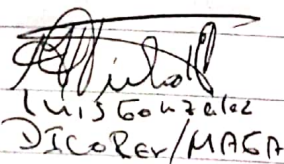 Luis Gonzalez
DICOREr/MAGA